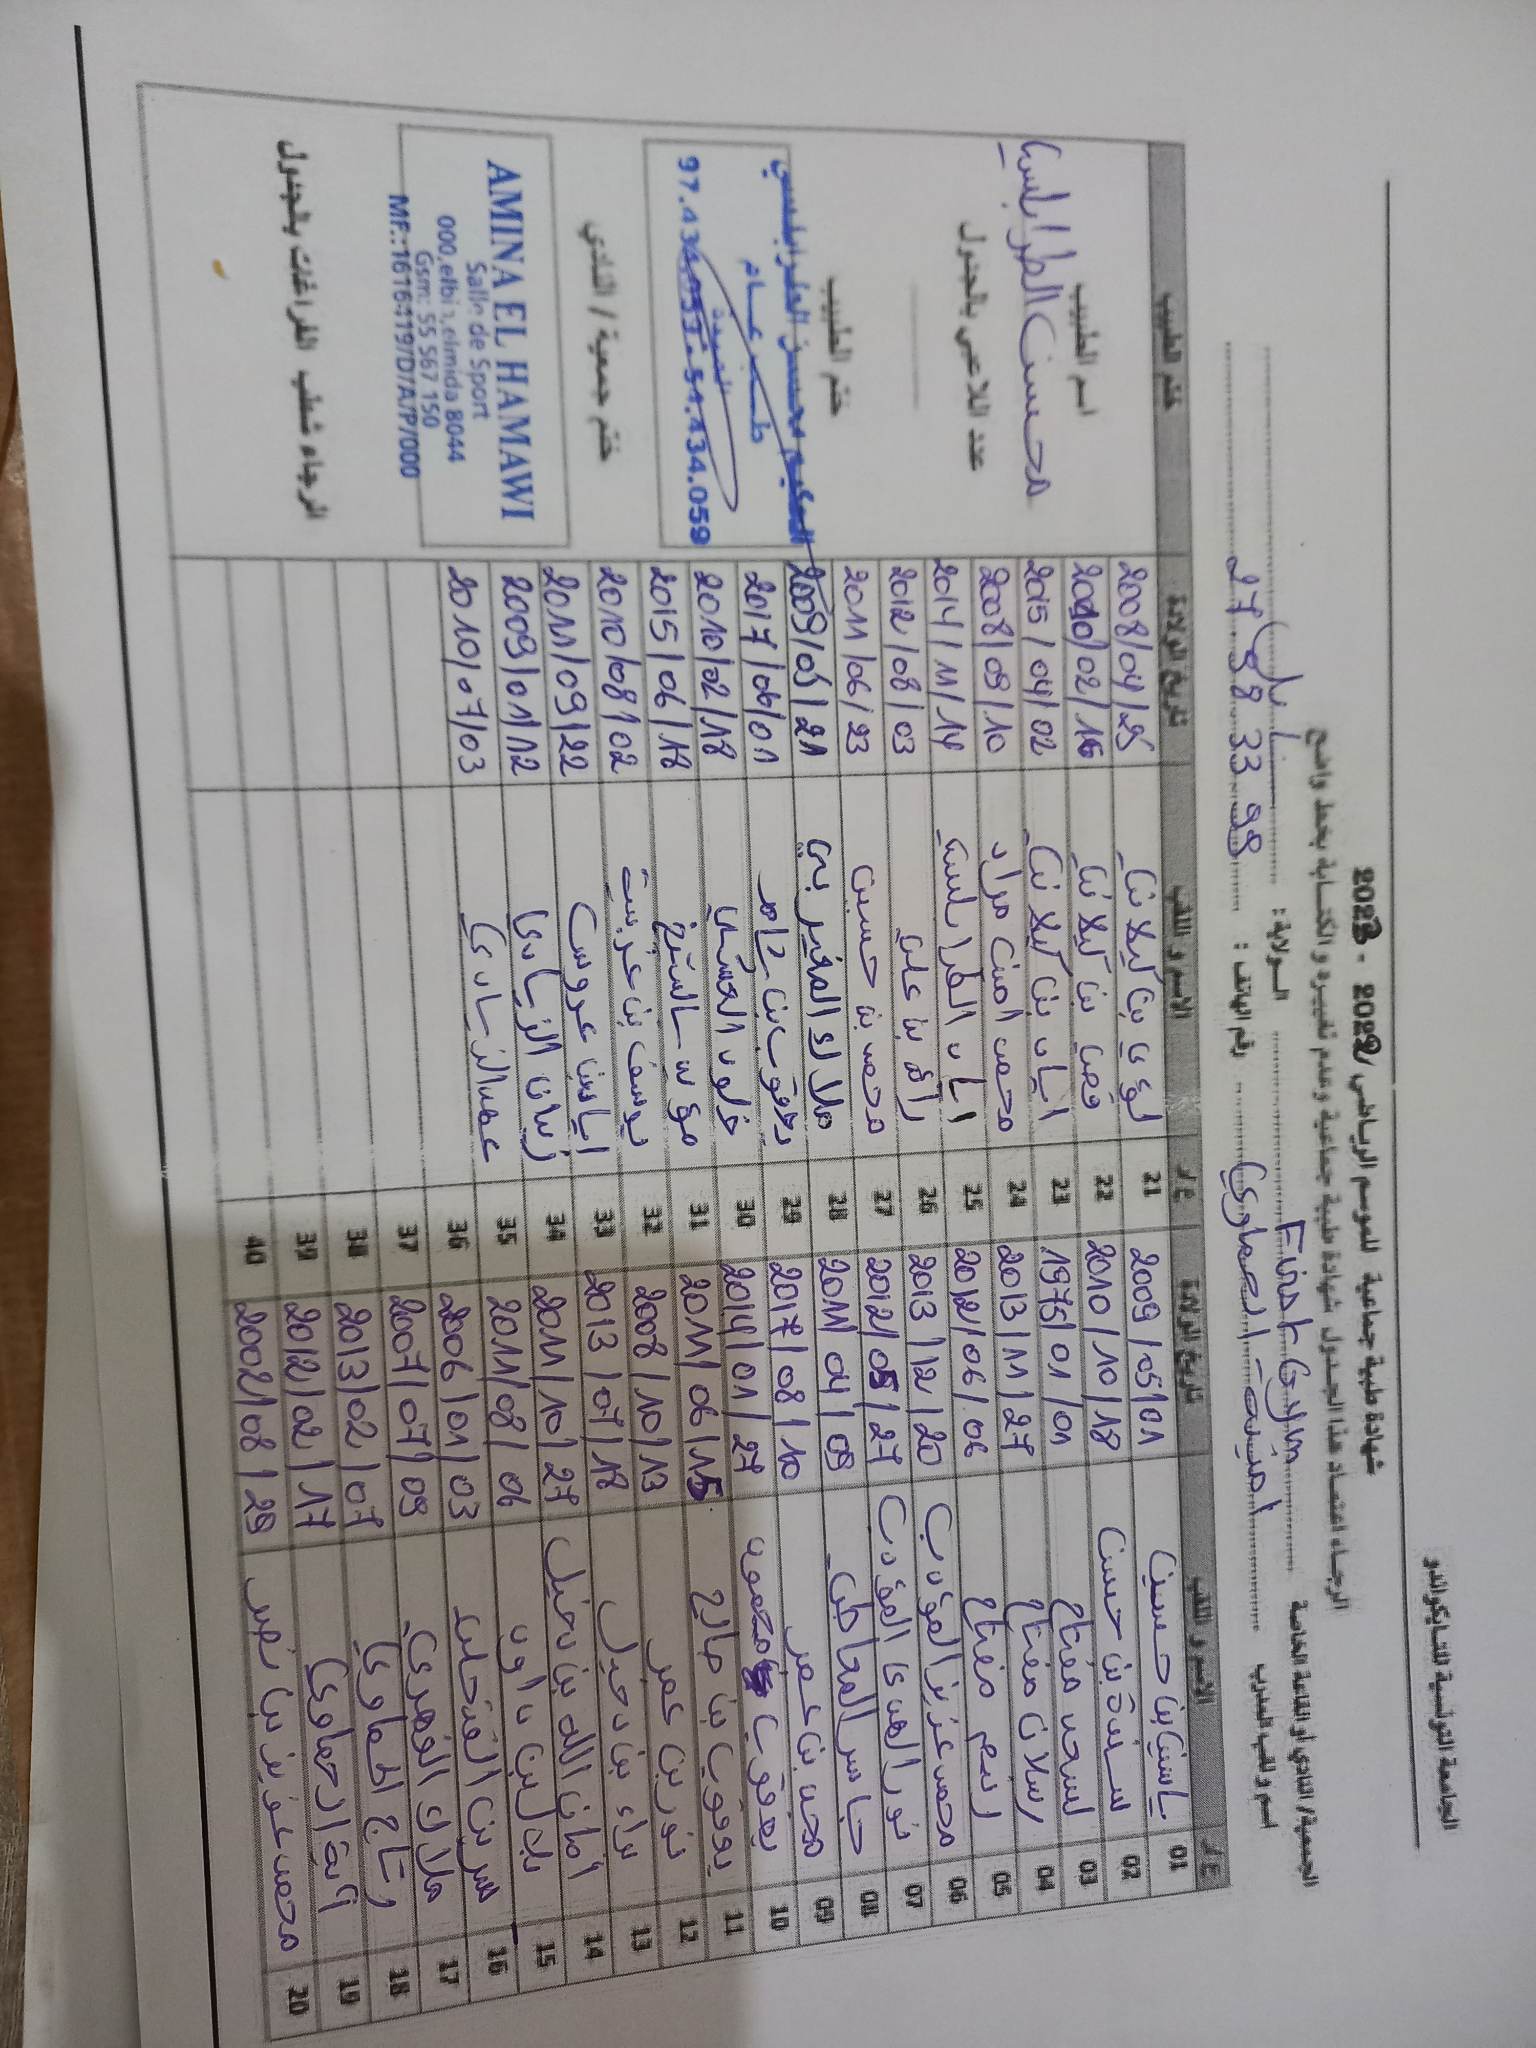 الجامعة التونسية للتايكواندو
شهادة طبية جماعية للموسم الرياضي 2022 - 2023
الرجاء اعتماد هذا الجدول شهادة طبية جماعية وعدم تغييره والكتابة بخط واضح
الجمعية/ النادي أو القاعة الخاصة First Gym الولاية: نابل
اسم و لقب المدرب امينة الحماوي رقم الهاتف: 27 98 33 98
ع/ر الاسم و اللقب تاريخ الولادة ع/ر الاسم و اللقب تاريخ الولادة ختم الطبيب
01 ياسين بن حسين 2009/05/01 21 لؤي بن كيلاني 2008/04/25
02 سندة بن حسن 2010/10/18 22 قصي بن كيلاني 2010/02/16
03 مفتاح 1975/01/01 23 اياد بن كيلاني 2015/04/02
04 رسلان مفتاح 2013/11/27 24 محمد امين مراد 2008/09/10
05 مفتاح 2012/06/06 25 اياد الطرابلسي 2014/11/14
06 محمد عزيز المؤدب 2013/12/20 26 بن علي 2012/08/03
07 نور الهدى المؤدب 2012/05/27 27 محمد بن حسين 2011/06/23
08 جاسر 2011/04/09 28 ملاك المغيربي 2009/05/21
09 بن عمر 2017/08/10 29 يعقوب بن 2017/06/01
10 يعقوب 2014/01/27 30 خلود العسكري 2010/02/18
11 يعقوب بن صالح 2011/06/15 31 2015/06/18
12 نور بن عمر 2008/10/13 32 يوسف بن عزيب 2010/08/02
13 براء بن دخيل 2013/07/18 33 اياد بن عروس 2011/09/22
14 امان الله بن دخيل 2011/10/27 34 زياد الزيادي 2009/01/12
15 بن داود 2011/08/06 35 الزيادي 2010/07/03
16 2006/01/03 36
17 ملاك الفهري 2007/07/09 37
18 رتاج الحماوي 2013/02/07 38
19 آية الحماوي 2012/02/17 39
20 محمد عزيز بن نصر 2002/08/29 40
اسم الطبيب
محسن الطرابلسي
عدد اللاعبين بالجدول
ختم الطبيب
الحكيم محسن الطرابلسي
طب عام
الميدة
97.434.059 - 54.434.059
ختم جمعية / النادي
AMINA EL HAMAWI
Salle de Sport
000,elbir,elmida 8044
Gsm: 55 567 150
MF.:1616119/D/A/P/000
الرجاء شطب الفراغات بالجدول